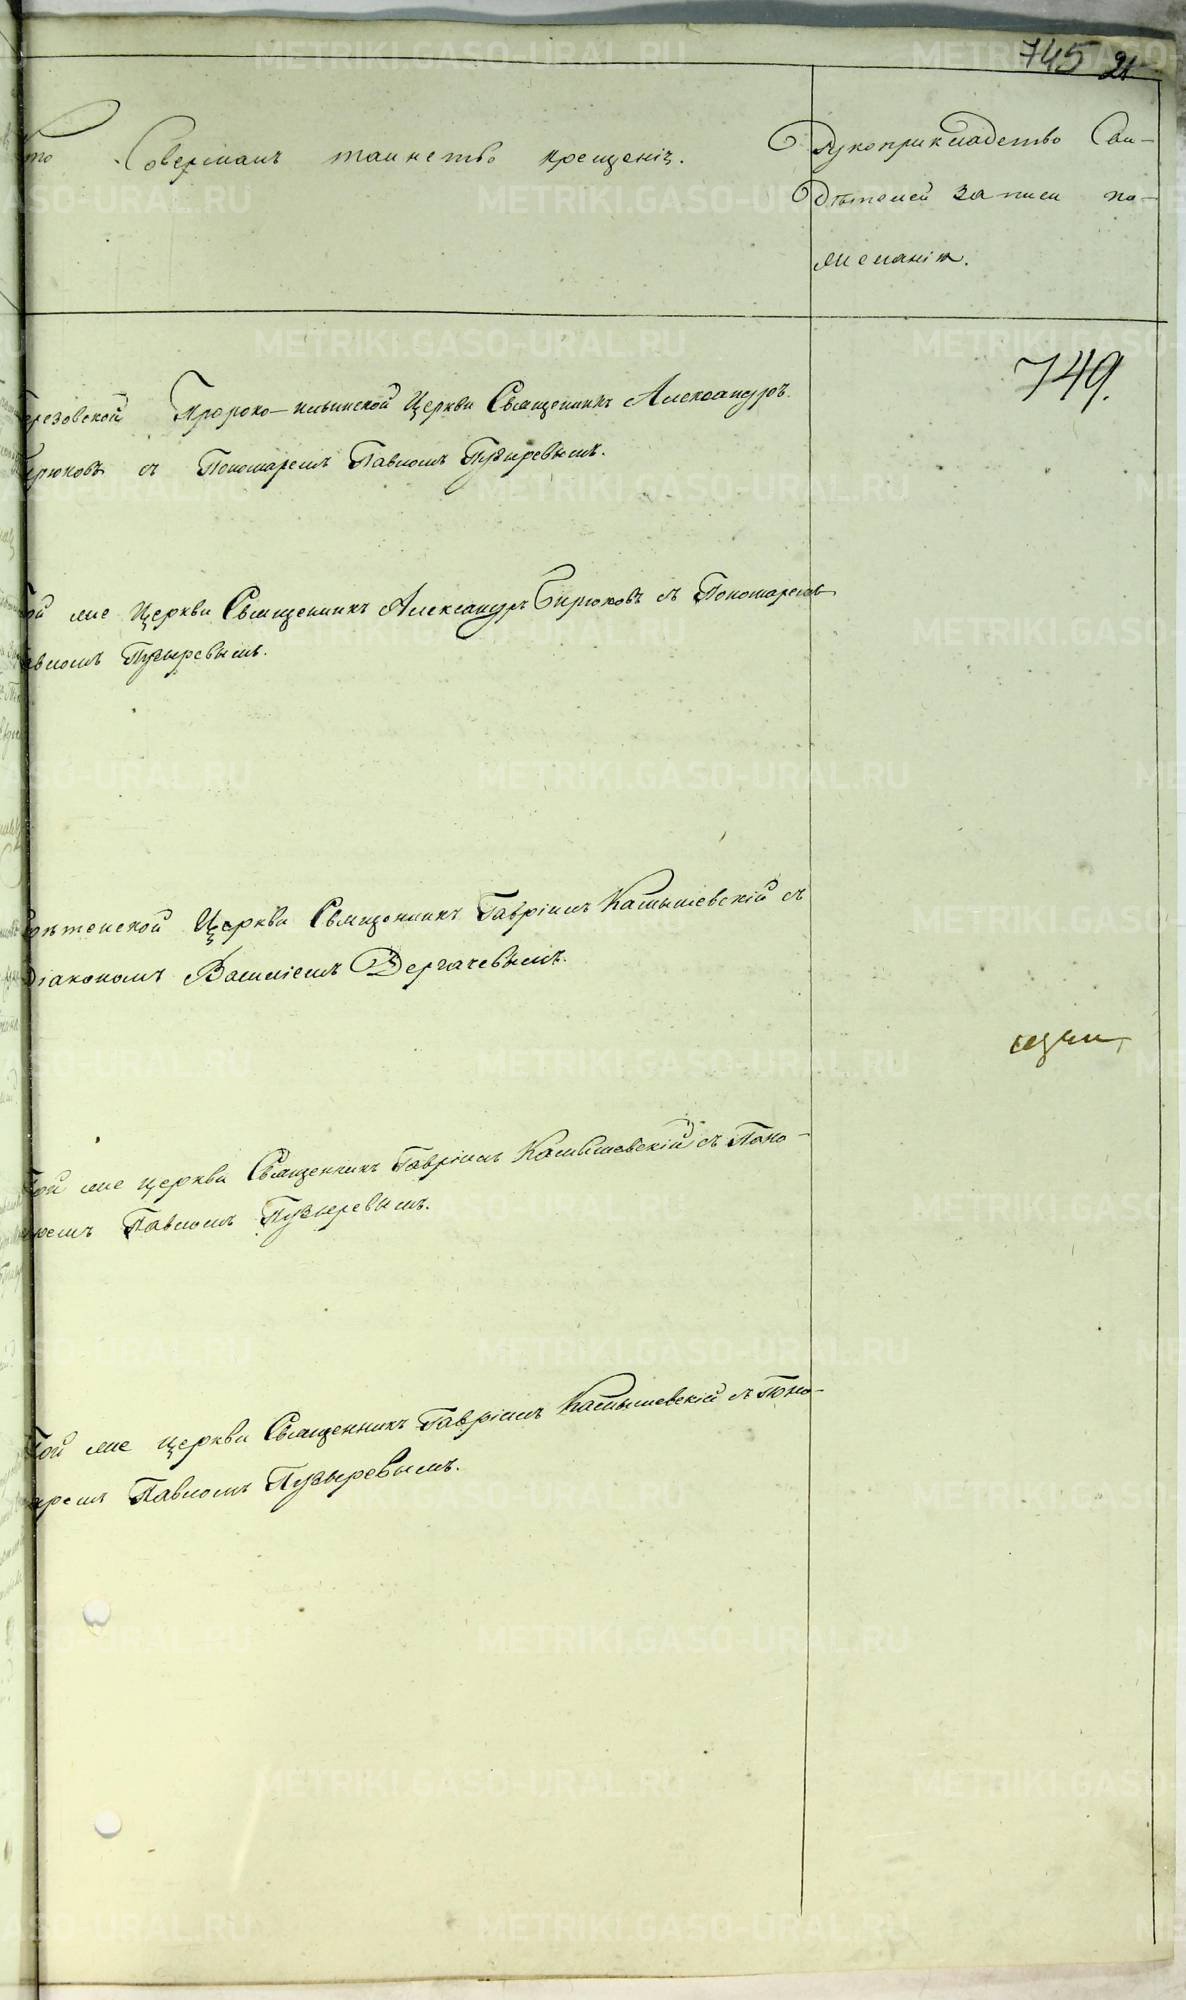 745 21
то Совершалъ таинство крещенія.
Рукоприкладство Сви-
дѣтелей записи по-
желанію.
749.
ерезовской Пророко-ильинской Церкви Священникъ Александръ
ирюковъ съ Пономаремъ Павломъ Пузыревымъ.
ой же Церкви Священникъ Александръ Бирюковъ съ Пономаремъ
авломъ Пузыревымъ.
рѣтенской Церкви Священникъ Гавріилъ Камышевскій съ
Діакономъ Василіемъ Дергачевымъ.
Той же церкви Священникъ Гавріилъ Камышевскій съ Поно-
аремъ Павломъ Пузыревымъ.
Той же церкви Священникъ Гавріилъ Камышевскій съ Поно-
аремъ Павломъ Пузыревымъ.
METRIKI.GASO-URAL.RU